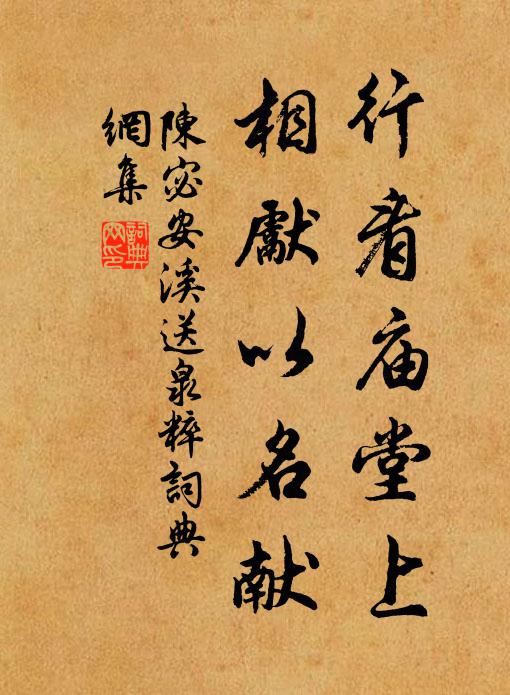 行看庙堂上
相獻以名献
陳宓安溪送泉粹詞典
網集
詞典
网印